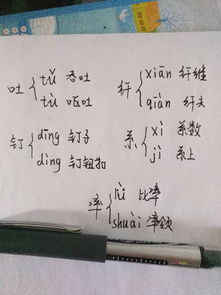 吐 tǔ 吞吐
tù 呕吐
纤 xiān 纤维
qiàn 纤夫
钉 dīng 钉子
dìng 钉钮扣
系 xì 系数
jì 系上
率 lǜ 比率
shuài 率领